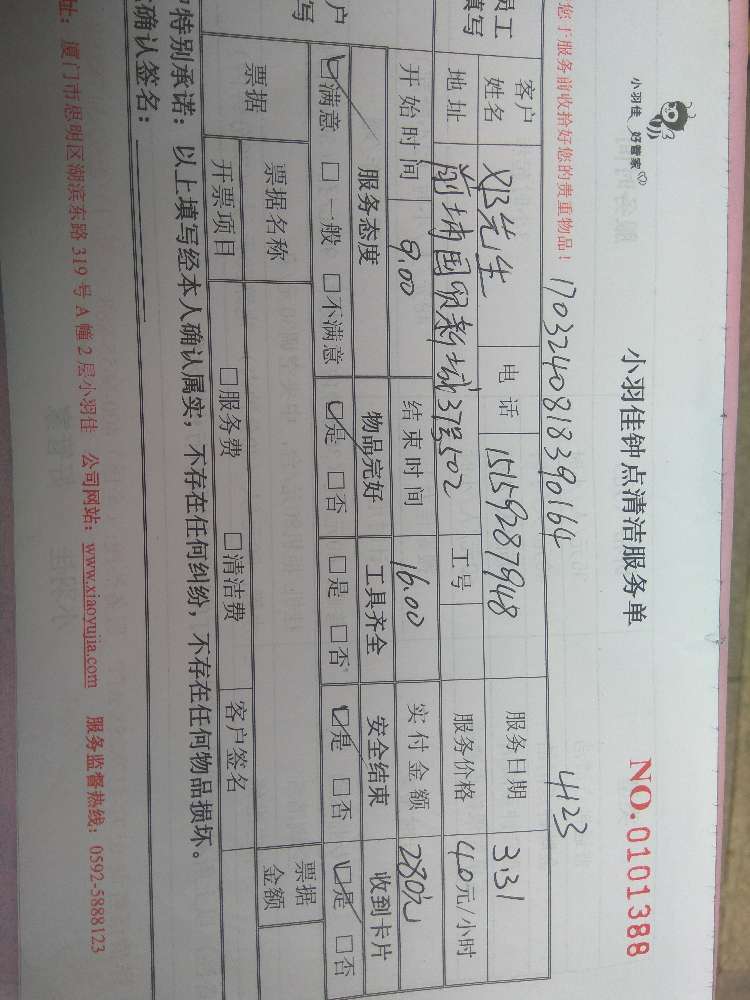 小羽佳 好管家
小羽佳钟点清洁服务单
NO.0101388
您于服务前收拾好您的贵重物品！
1703240818390164
4123
员工
填写
客户
姓名
先生
电话
15159287948
服务日期
3.31
地址
前埔国贸新城37号502
工号
服务价格
40元/小时
开始时间
9.00
结束时间
16.00
实付金额
280元
户
写
服务态度
物品完好
工具齐全
安全结束
收到卡片
☑满意 □一般 □不满意
☑是 □否
□是 □否
☑是 □否
☑是 □否
票据
票据名称
票据
金额
开票项目
□服务费 □清洁费
客户签名
特别承诺：以上填写经本人确认属实，不存在任何纠纷，不存在任何物品损坏。
确认签名：
址：厦门市思明区湖滨东路319号A幢2层小羽佳 公司网站：www.xiaoyujia.com 服务监督热线：0592-5888123